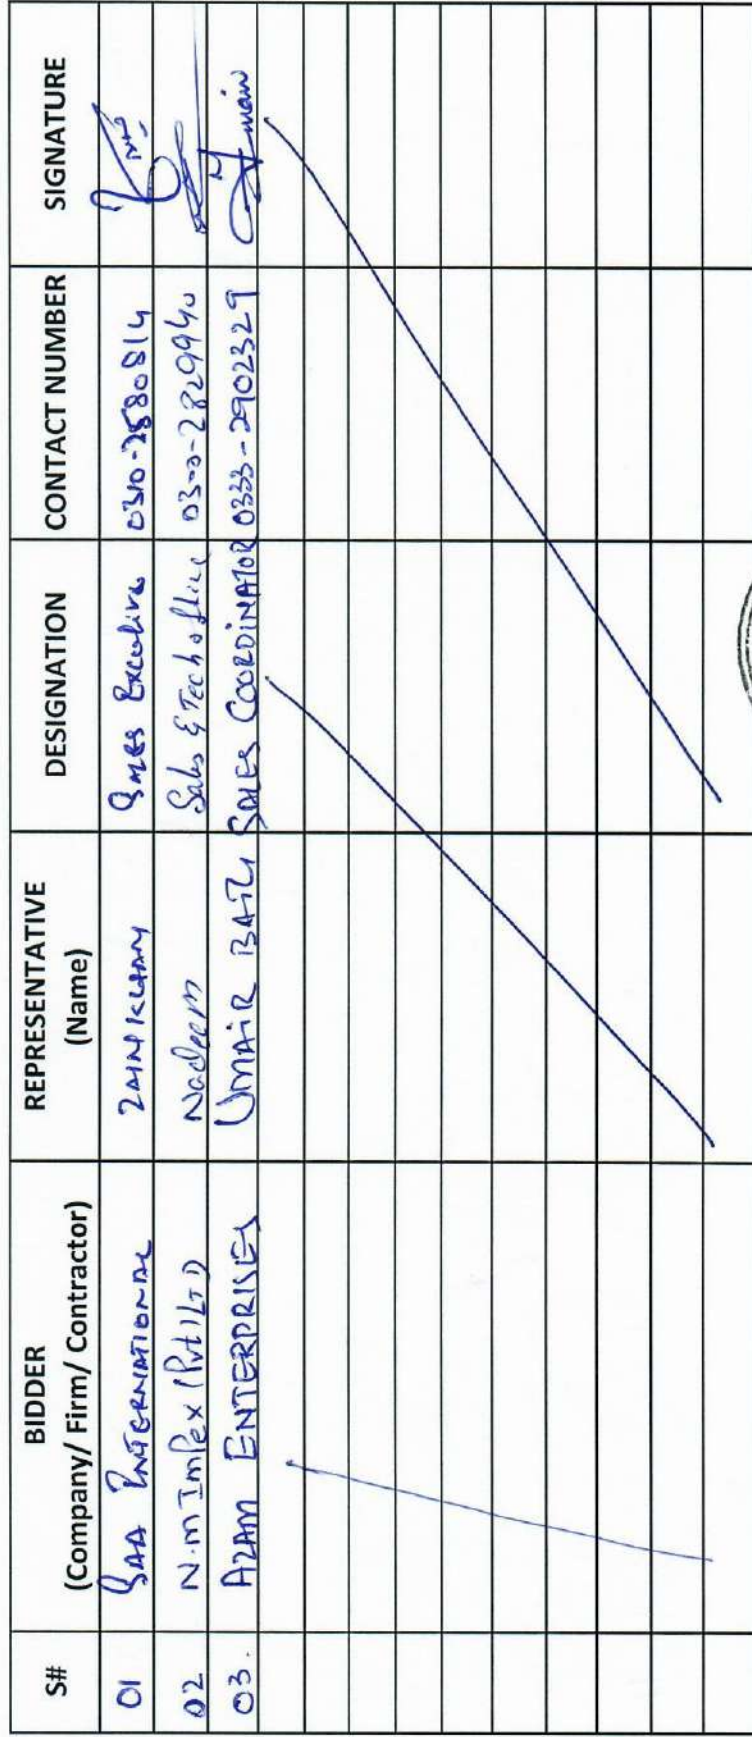 S# BIDDER (Company/ Firm/ Contractor) REPRESENTATIVE (Name) DESIGNATION CONTACT NUMBER SIGNATURE
01 SAA INTERNATIONAL ZAIN KHAN SALES Executive 0310-2580814
02 N.m Impex (Pvt) LTD Nadeem Sales & Tech office 0300-2829940
03. AZAM ENTERPRISES UMAIR BAIG SALES COORDINATOR 0333-2902329